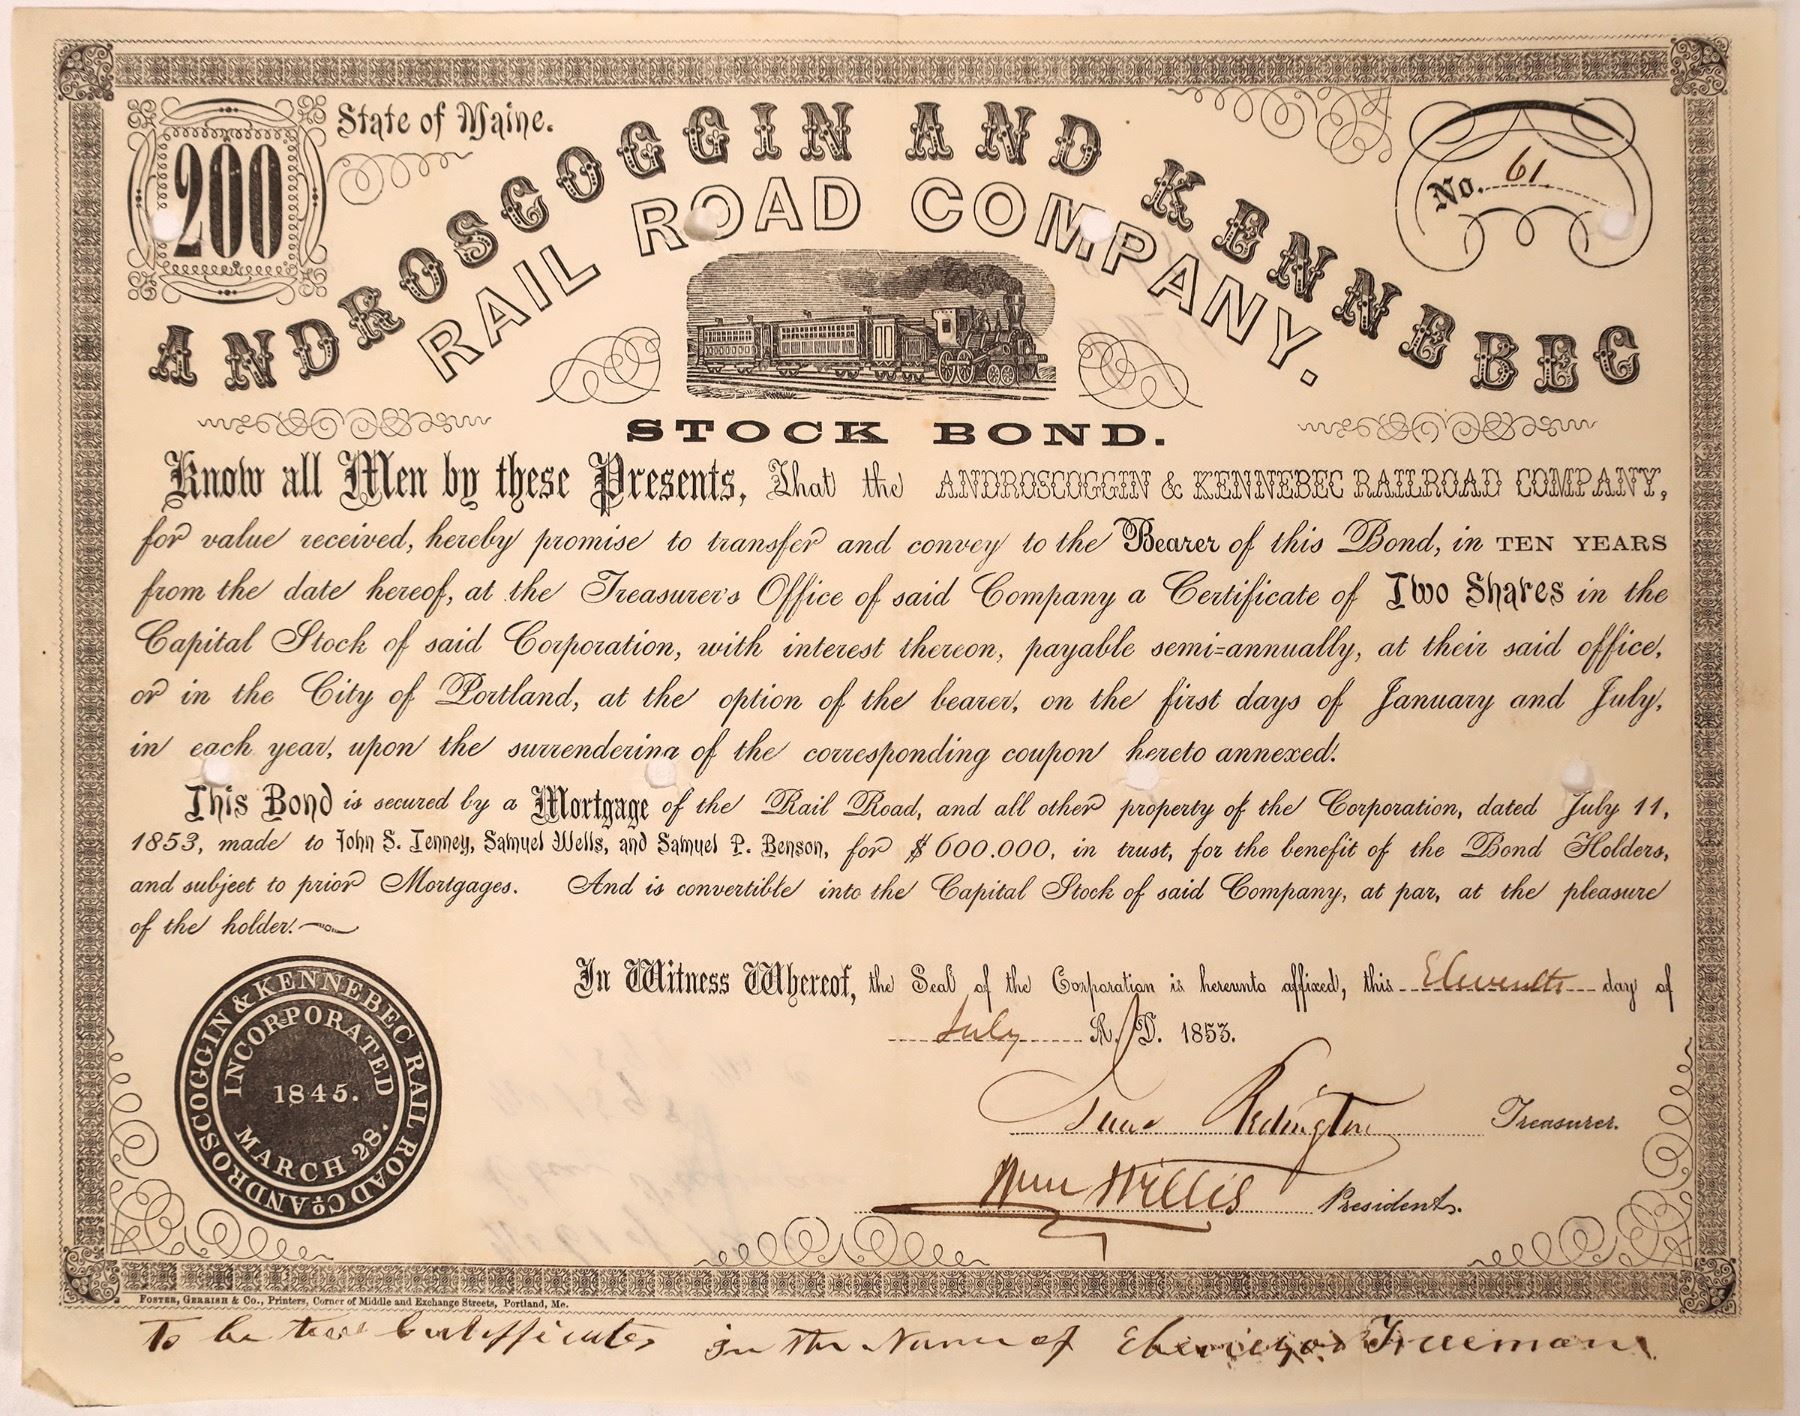 200
State of Maine.
No. 61.
ANDROSCOGGIN AND KENNEBEC
RAIL ROAD COMPANY.
STOCK BOND.
Know all Men by these Presents, That the ANDROSCOGGIN & KENNEBEC RAILROAD COMPANY,
for value received, hereby promise to transfer and convey to the Bearer of this Bond, in TEN YEARS
from the date hereof, at the Treasurer's Office of said Company a Certificate of Two Shares in the
Capital Stock of said Corporation, with interest thereon, payable semi=annually, at their said office,
or in the City of Portland, at the option of the bearer, on the first days of January and July,
in each year, upon the surrendering of the corresponding coupon hereto annexed.
This Bond is secured by a Mortgage of the Rail Road, and all other property of the Corporation, dated July 11,
1853, made to John S. Tenney, Samuel Wells, and Samuel P. Benson, for $600.000, in trust, for the benefit of the Bond Holders,
and subject to prior Mortgages. And is convertible into the Capital Stock of said Company, at par, at the pleasure
of the holder.
In Witness Whereof, the Seal of the Corporation is hereunto affixed, this Eleventh day of
July A. D. 1853.
ANDROSCOGGIN & KENNEBEC RAIL ROAD Co
INCORPORATED
1845.
MARCH 28.
Isaac Redington Treasurer.
Wm Willis President.
FOSTER, GERRISH & CO., Printers, Corner of Middle and Exchange Streets, Portland, Me.
To be two Certifficates in the Name of Ebenezer Freeman